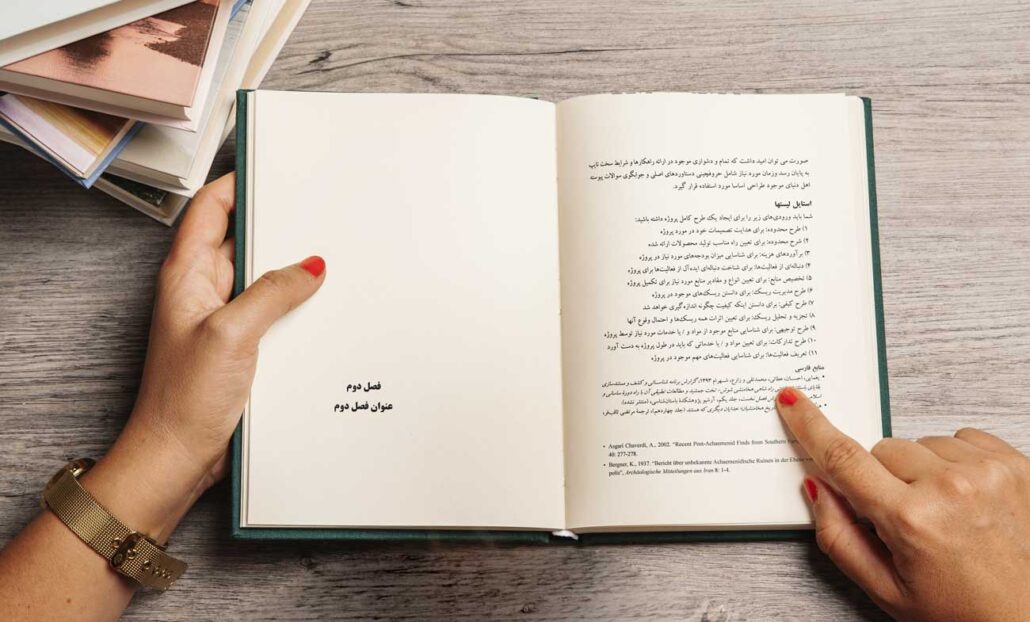 صورت می توان امید داشت که تمام و دشواری موجود در ارائه راهکارها و شرایط سخت تایپ
به پایان رسد وزمان مورد نیاز شامل حروفچینی دستاوردهای اصلی و جوابگوی سوالات پیوسته
اهل دنیای موجود طراحی اساسا مورد استفاده قرار گیرد.
استایل لیستها
شما باید ورودی‌های زیر را برای ایجاد یک طرح کامل پروژه داشته باشید:
۱) طرح محدوده: برای هدایت تصمیمات خود در مورد پروژه
۲) شرح محدوده: برای تعیین راه مناسب تولید محصولات ارائه شده
۳) برآوردهای هزینه: برای شناسایی میزان بودجه‌های مورد نیاز در پروژه
۴) دنباله‌ای از فعالیت‌ها: برای شناخت دنباله‌ای ایده‌آل از فعالیت‌ها برای پروژه
۵) تخصیص منابع: برای تعیین انواع و مقادیر منابع مورد نیاز برای تکمیل پروژه
۶) طرح مدیریت ریسک: برای دانستن ریسک‌های موجود در پروژه
۷) طرح کیفی: برای دانستن اینکه کیفیت چگونه اندازه‌گیری خواهد شد
۸) تجزیه و تحلیل ریسک: برای تعیین اثرات همه ریسک‌ها و احتمال وقوع آنها
۹) طرح توجیهی: برای شناسایی منابع موجود از مواد و / یا خدمات مورد نیاز توسط پروژه
۱۰) طرح تدارکات: برای تعیین مواد و / یا خدماتی که باید در طول پروژه به دست آورد
۱۱) تعریف فعالیت‌ها: برای شناسایی فعالیت‌های مهم موجود در پروژه
منابع فارسی
• یغمایی، احسان، عطائی، محمدتقی و زارع، شهرام ۱۳۹۳، گزارش برنامه شناسائی و کشف و مستندسازی
راه شاهی هخامنشی شوش - تخت جمشید و مطالعات تطبیقی آن با راه دورهٔ ساسانی و
اسلام فصل نخست، جلد یکم، آرشیو پژوهشکدهٔ باستان‌شناسی، (منتشر نشده).
• تاریخ هخامنشیان: خدایان دیگری که هستند (جلد چهاردهم)، ترجمهٔ مرتضی ثاقب‌فر،
• Asgari Chaverdi, A., 2002. "Recent Post-Achaemenid Finds from Southern
40: 277-278.
• Bergner, K., 1937. "Bericht über unbekannte Achaemenidische Ruinen in der Ebene
polis", Archäologische Mitteilungen aus Iran 8: 1-4.
فصل دوم
عنوان فصل دوم